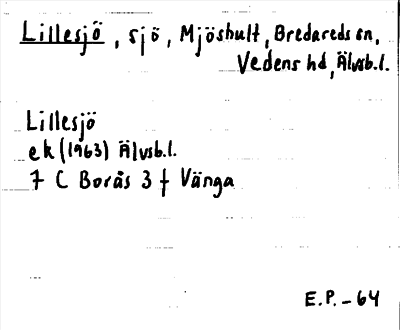 Lillesjö, sjö, Mjöshult, Bredareds sn,
Vedens hd, Älvsb.l.
Lillesjö
ek (1963) Älvsb.l.
7 C Borås 3 f Vänga
E.P. - 64